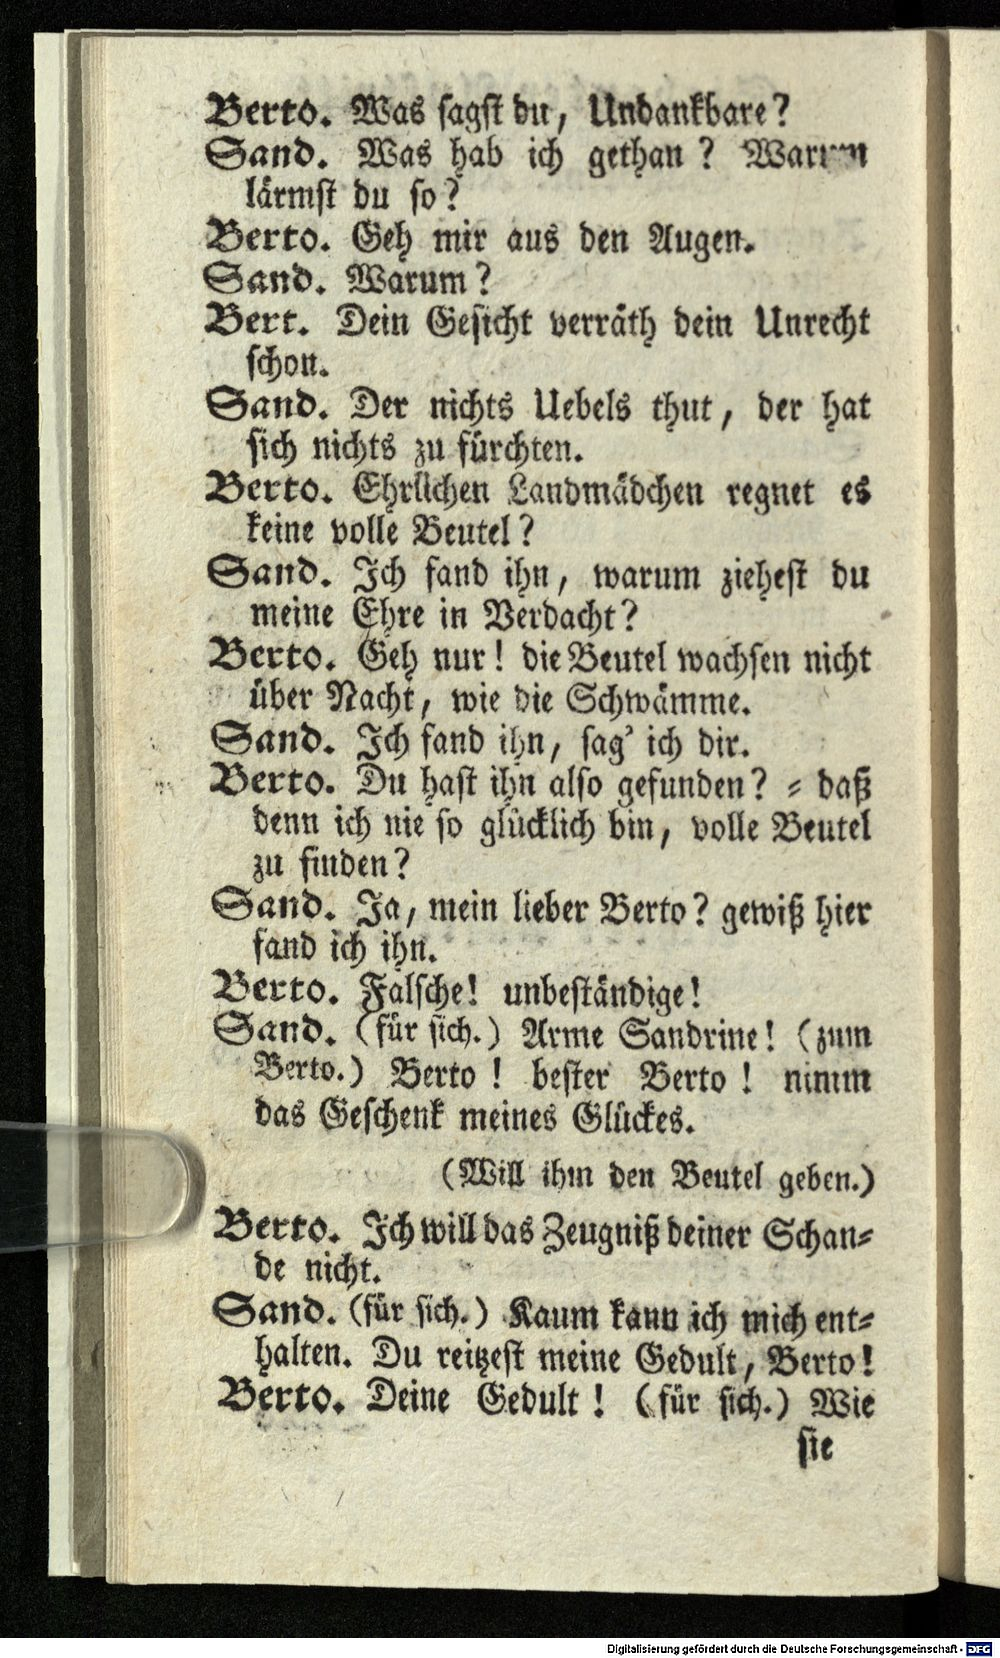 Berto. Was sagst du, Undankbare?
Sand. Was hab ich gethan? Warum
lärmst du so?
Berto. Geh mir aus den Augen.
Sand. Warum?
Bert. Dein Gesicht verräth dein Unrecht
schon.
Sand. Der nichts Uebels thut, der hat
sich nichts zu fürchten.
Berto. Ehrlichen Landmädchen regnet es
keine volle Beutel?
Sand. Ich fand ihn, warum ziehest du
meine Ehre in Verdacht?
Berto. Geh nur! die Beutel wachsen nicht
über Nacht, wie die Schwämme.
Sand. Ich fand ihn, sag' ich dir.
Berto. Du hast ihn also gefunden? - daß
denn ich nie so glücklich bin, volle Beutel
zu finden?
Sand. Ja, mein lieber Berto? gewiß hier
fand ich ihn.
Berto. Falsche! unbeständige!
Sand. (für sich.) Arme Sandrine! (zum
Berto.) Berto! bester Berto! nimm
das Geschenk meines Glückes.
(Will ihm den Beutel geben.)
Berto. Ich will das Zeugniß deiner Schan-
de nicht.
Sand. (für sich.) Kaum kann ich mich ent-
halten. Du reitzest meine Gedult, Berto!
Berto. Deine Gedult! (für sich.) Wie
sie
Digitalisierung gefördert durch die Deutsche Forschungsgemeinschaft - DFG